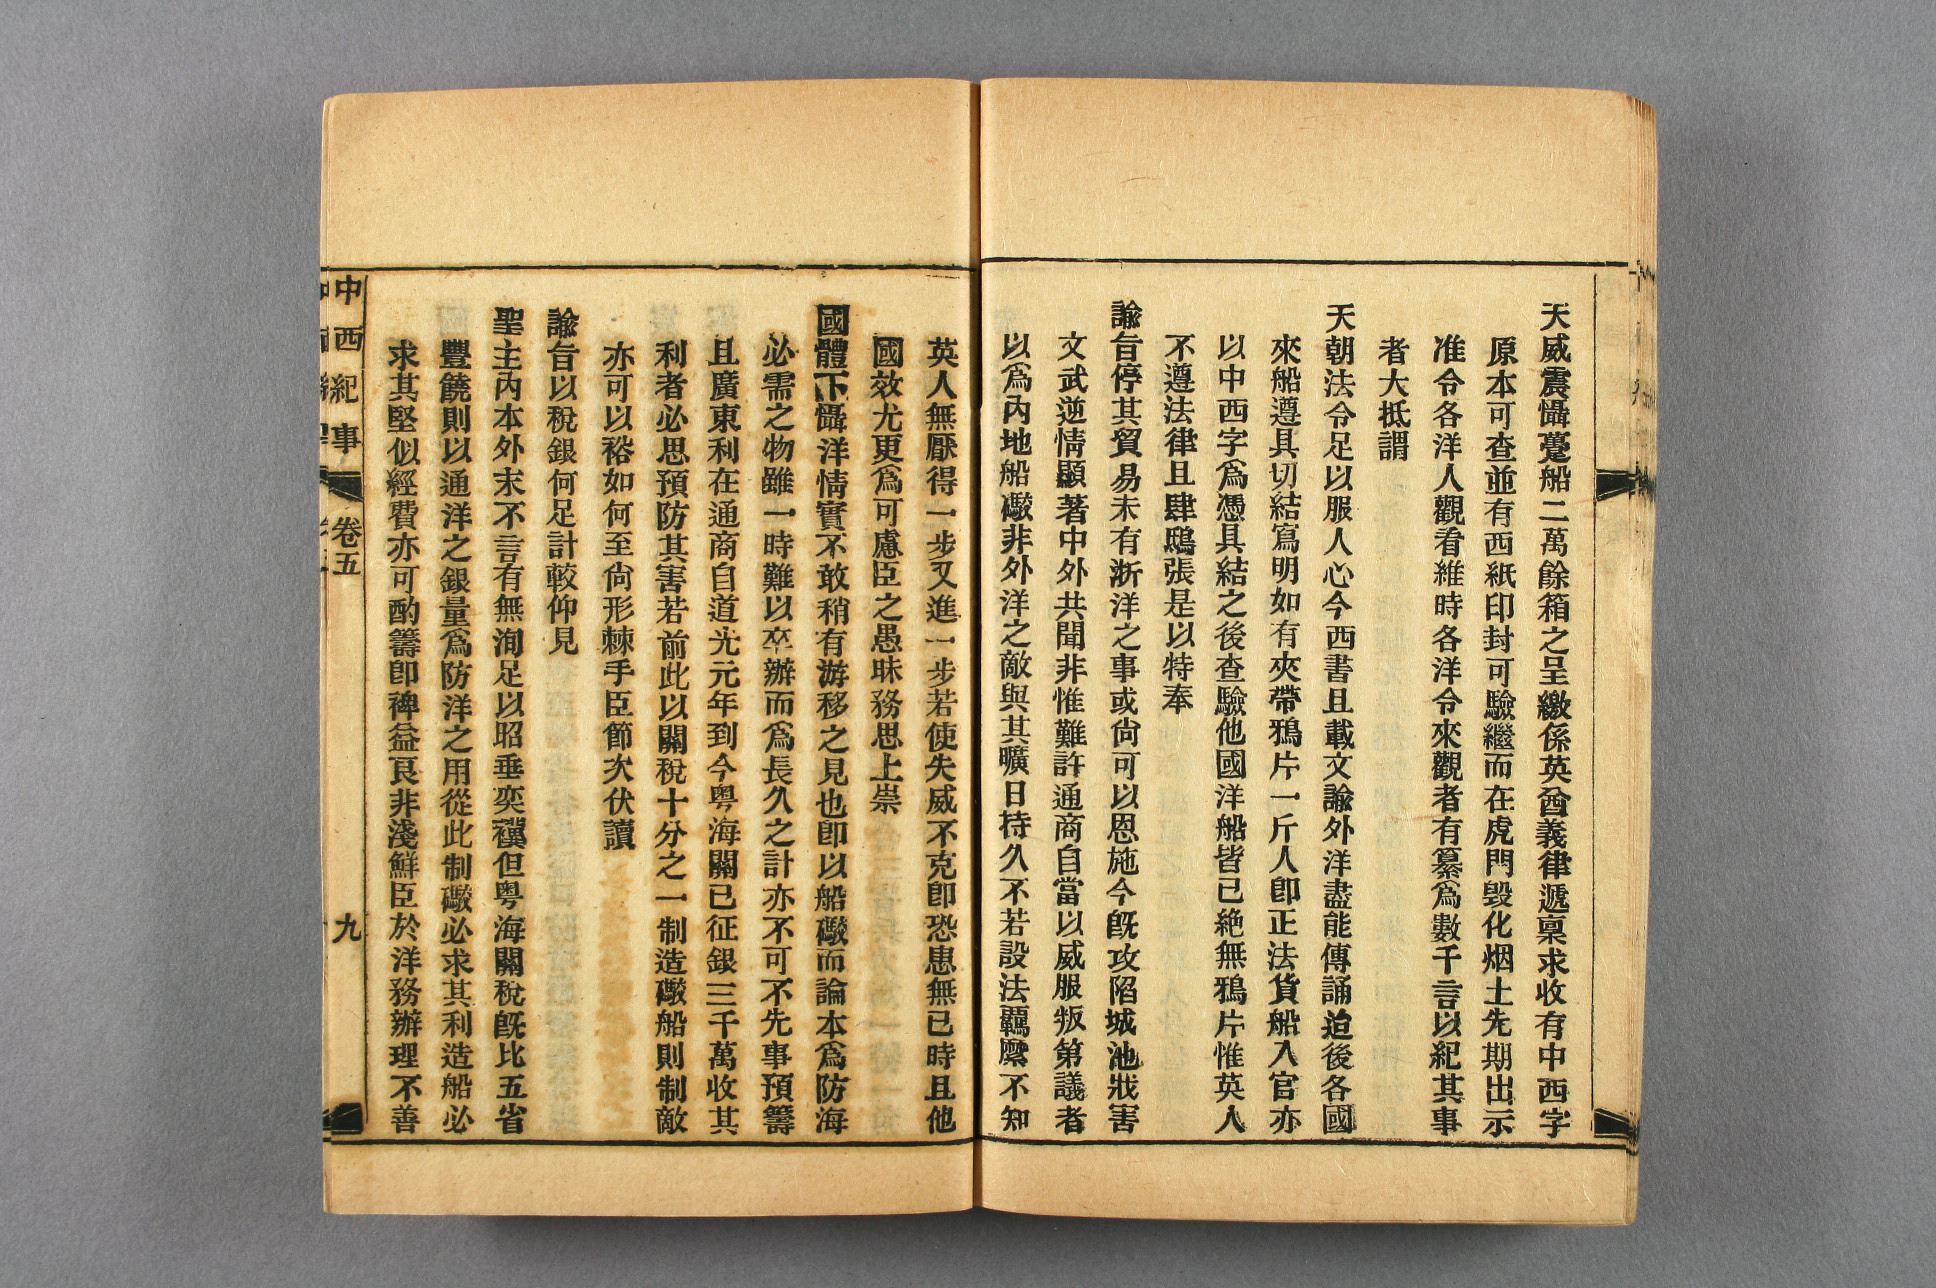 天威震懾躉船二萬餘箱之呈繳係英酋義律遞稟求收有中西字
原本可查並有西紙印封可驗繼而在虎門毀化烟土先期出示
准令各洋人觀看維時各洋令來觀者有纂爲數千言以紀其事
者大抵謂
天朝法令足以服人心今西書且載文諭外洋盡能傳誦迨後各國
來船遵具切結寫明如有夾帶鴉片一斤人卽正法貨船入官亦
以中西字爲憑具結之後查驗他國洋船皆已絶無鴉片惟英人
不遵法律且肆鴟張是以特奉
諭旨停其貿易未有浙洋之事或尙可以恩施今旣攻陷城池戕害
文武逆情顯著中外共聞非惟難許通商自當以威服叛第議者
以爲內地船礮非外洋之敵與其曠日持久不若設法羈縻不知
英人無厭得一步又進一步若使失威不克卽恐患無已時且他
國效尤更爲可慮臣之愚昧務思上崇
國體下懾洋情實不敢稍有游移之見也卽以船礮而論本爲防海
必需之物雖一時難以卒辦而爲長久之計亦不可不先事預籌
且廣東利在通商自道光元年到今粤海關已征銀三千萬收其
利者必思預防其害若前此以關稅十分之一制造礮船則制敵
亦可以裕如何至尙形棘手臣節次伏讀
諭旨以稅銀何足計較仰見
聖主內本外末不言有無洵足以昭垂奕禩但粤海關稅旣比五省
豐饒則以通洋之銀量爲防洋之用從此制礮必求其利造船必
求其堅似經費亦可酌籌卽裨益良非淺鮮臣於洋務辦理不善
中西紀事 卷五 九